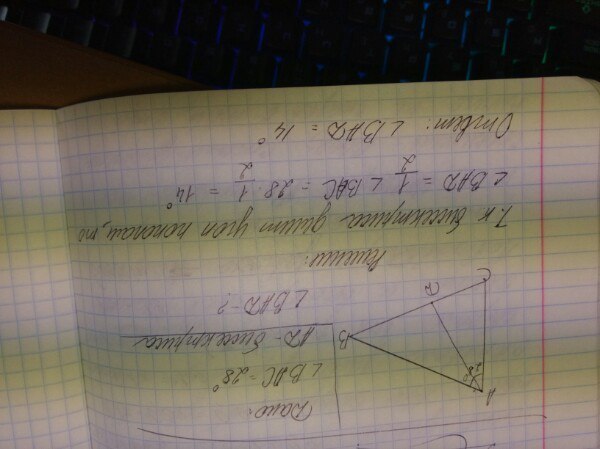 Дано:
∠BAC = 28°
AD - биссектриса
∠BAD - ?
A
28°
B
D
C
Решение:
Т.к биссектриса делит угол пополам, то
∠BAD = 1/2 ∠BAC = 28 · 1/2 = 14°
Ответ: ∠BAD = 14°